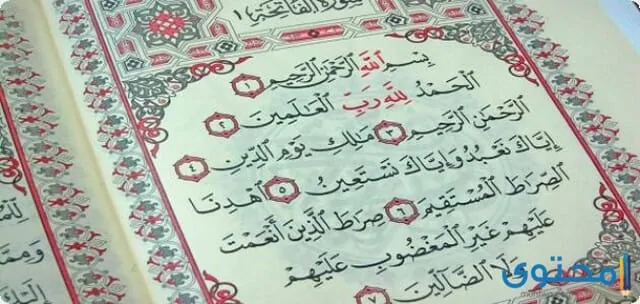 سورة الفاتحة ١
بِسْمِ ٱللَّهِ ٱلرَّحْمَٰنِ ٱلرَّحِيمِ ١
ٱلْحَمْدُ لِلَّهِ رَبِّ ٱلْعَٰلَمِينَ ٢
ٱلرَّحْمَٰنِ ٱلرَّحِيمِ ٣ مَٰلِكِ يَوْمِ ٱلدِّينِ ٤
إِيَّاكَ نَعْبُدُ وَإِيَّاكَ نَسْتَعِينُ ٥ ٱهْدِنَا
ٱلصِّرَٰطَ ٱلْمُسْتَقِيمَ ٦ صِرَٰطَ ٱلَّذِينَ أَنْعَمْتَ
عَلَيْهِمْ غَيْرِ ٱلْمَغْضُوبِ عَلَيْهِمْ
وَلَا ٱلضَّآلِّينَ ٧
محتوى